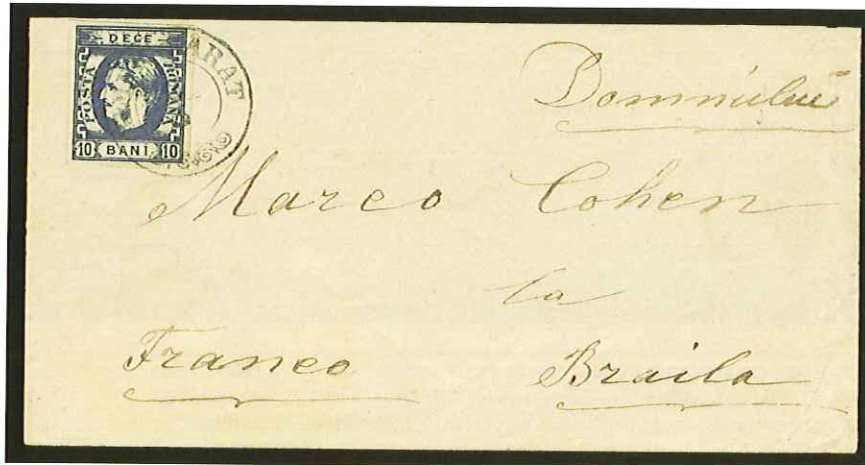 DECE
POSTA ROMANA
10 BANI 10
ARAT
Domnului
Marco Cohen
la
Franco Braila